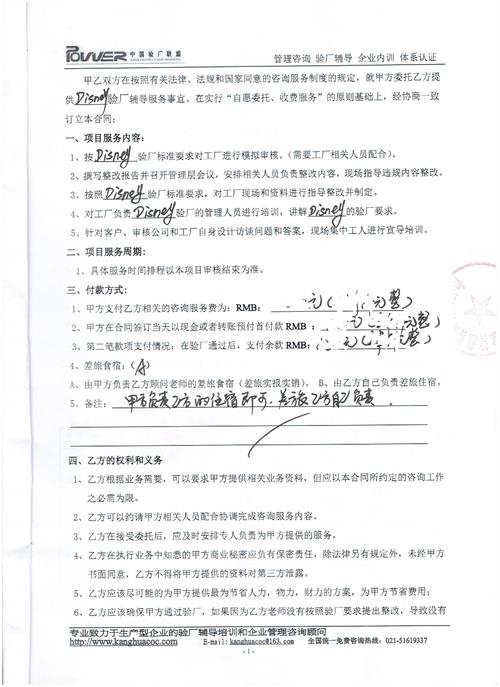 POWER 中国验厂联盟
管理咨询 验厂辅导 企业内训 体系认证
甲乙双方在按照有关法律、法规和国家同意的咨询服务制度的规定，就甲方委托乙方提
供Disney验厂辅导服务事宜。在实行“自愿委托、收费服务”的原则基础上，经协商一致
订立本合同：
一、项目服务内容：
1、按Disney验厂标准要求对工厂进行模拟审核。（需要工厂相关人员配合）。
2、撰写整改报告并召开管理层会议，安排相关人员负责整改内容，现场指导违规内容整改。
3、按照Disney验厂标准，对工厂现场和资料进行指导整改并制定。
4、对工厂负责Disney验厂的管理人员进行培训，讲解Disney的验厂要求。
5、针对客户、审核公司和工厂自身设计访谈问题和答案，现场集中工人进行宣导培训。
二、项目服务周期：
1、具体服务时间排程以本项目审核结束为准。
三、付款方式：
1、甲方支付乙方相关的咨询服务费为：RMB： 元（ 元整）
2、甲方在合同签订当天以现金或者转账预付首付款 RMB： 元（ 元整）
3、第二笔款项支付情况：在验厂通过后，支付余款 RMB： 元（ 元整）
4、差旅食宿：（A）
A、由甲方负责乙方顾问老师的差旅食宿（差旅实报实销）。 B、由乙方自己负责差旅住宿。
5、备注：甲方负责乙方的住宿即可，差旅乙方自己负责．
四、乙方的权利和义务
1、乙方根据业务需要，可以要求甲方提供相关业务资料，但应以本合同所约定的咨询工作
之必需为限。
2、乙方可以约请甲方相关人员配合协调完成咨询服务内容。
3、乙方在接受委托后，应及时安排专人负责为甲方提供的服务。
4、乙方在执行业务中知悉的甲方商业秘密应负有保密责任，除法律另有规定外，未经甲方
书面同意，乙方不得将甲方提供的资料对第三方泄露。
5、乙方应该尽可能的为甲方提供最为节省人力，物力，财力的方案，为甲方节省费用；
6、乙方应该确保甲方通过验厂，如果因为乙方老师没有按照验厂要求提出整改，导致没有
专业致力于生产型企业的验厂辅导培训和企业管理咨询顾问
http://www.kanghuacoc.com E-mail:kanghuacoc@163.com 全国统一免费咨询热线：021-51619337
- 1 -